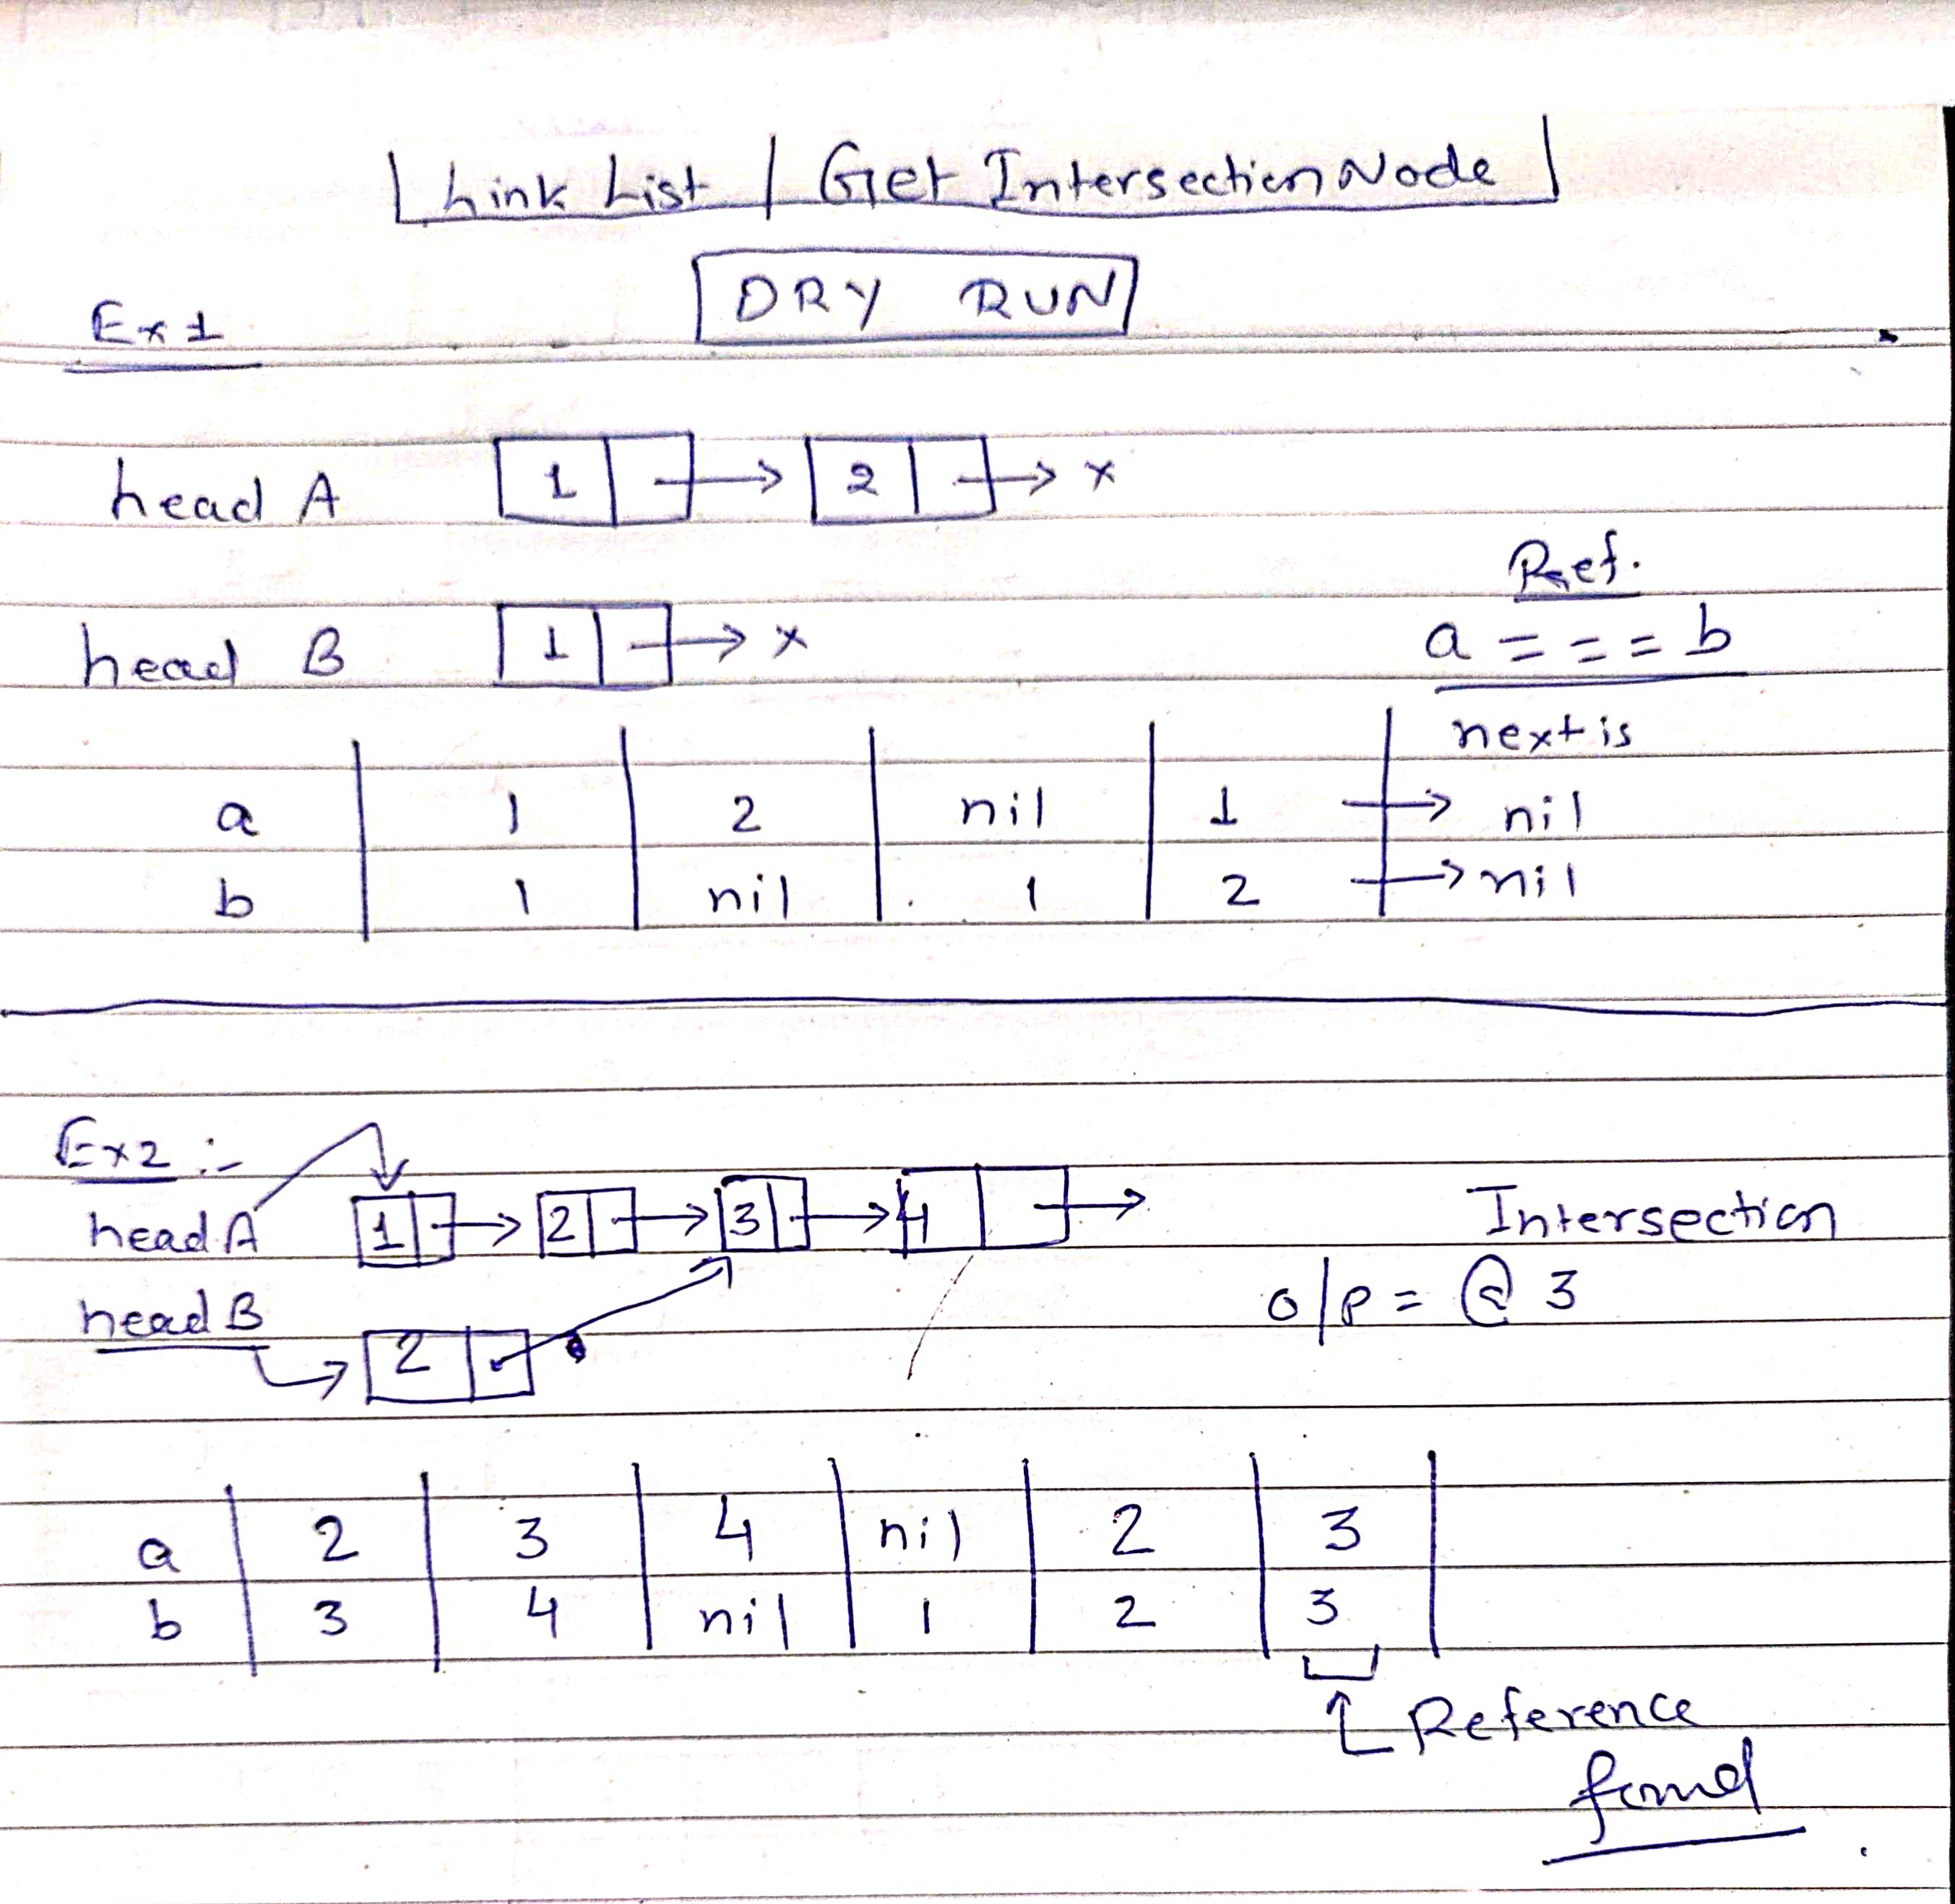 Link List | Get Intersection Node
DRY RUN
Ex 1
head A 1 → 2 → x
Ref.
head B 1 → x a = = = b
next is
a 1 2 nil 1 → nil
b 1 nil 1 2 → nil
Ex 2 :-
head A 1 → 2 → 3 → 4 → Intersection
head B o/p = @ 3
2
a 2 3 4 nil 2 3
b 3 4 nil 1 2 3
Reference
found